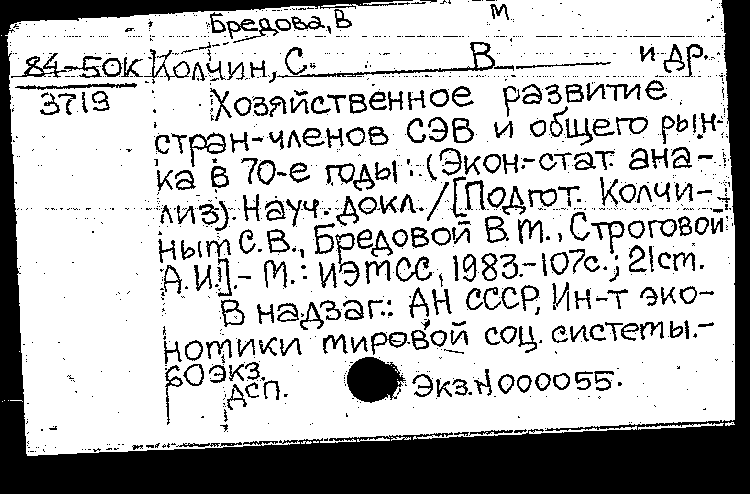 Бредова, В М
84-50К Колчин, С. В и др.
3719 Хозяйственное развитие
стран-членов СЭВ и общего рын-
ка в 70-е годы: (Экон.-стат. ана-
лиз). Науч. докл. / [Подгот. Колчи-
ным С. В., Бредовой В. М., Строговой
А. И.]. - М.: ИЭМСС, 1983.-107с.; 21см.
В надзаг.: АН СССР, Ин-т эко-
номики мировой соц. системы.-
60 экз.
ДСП. Экз.N000055.